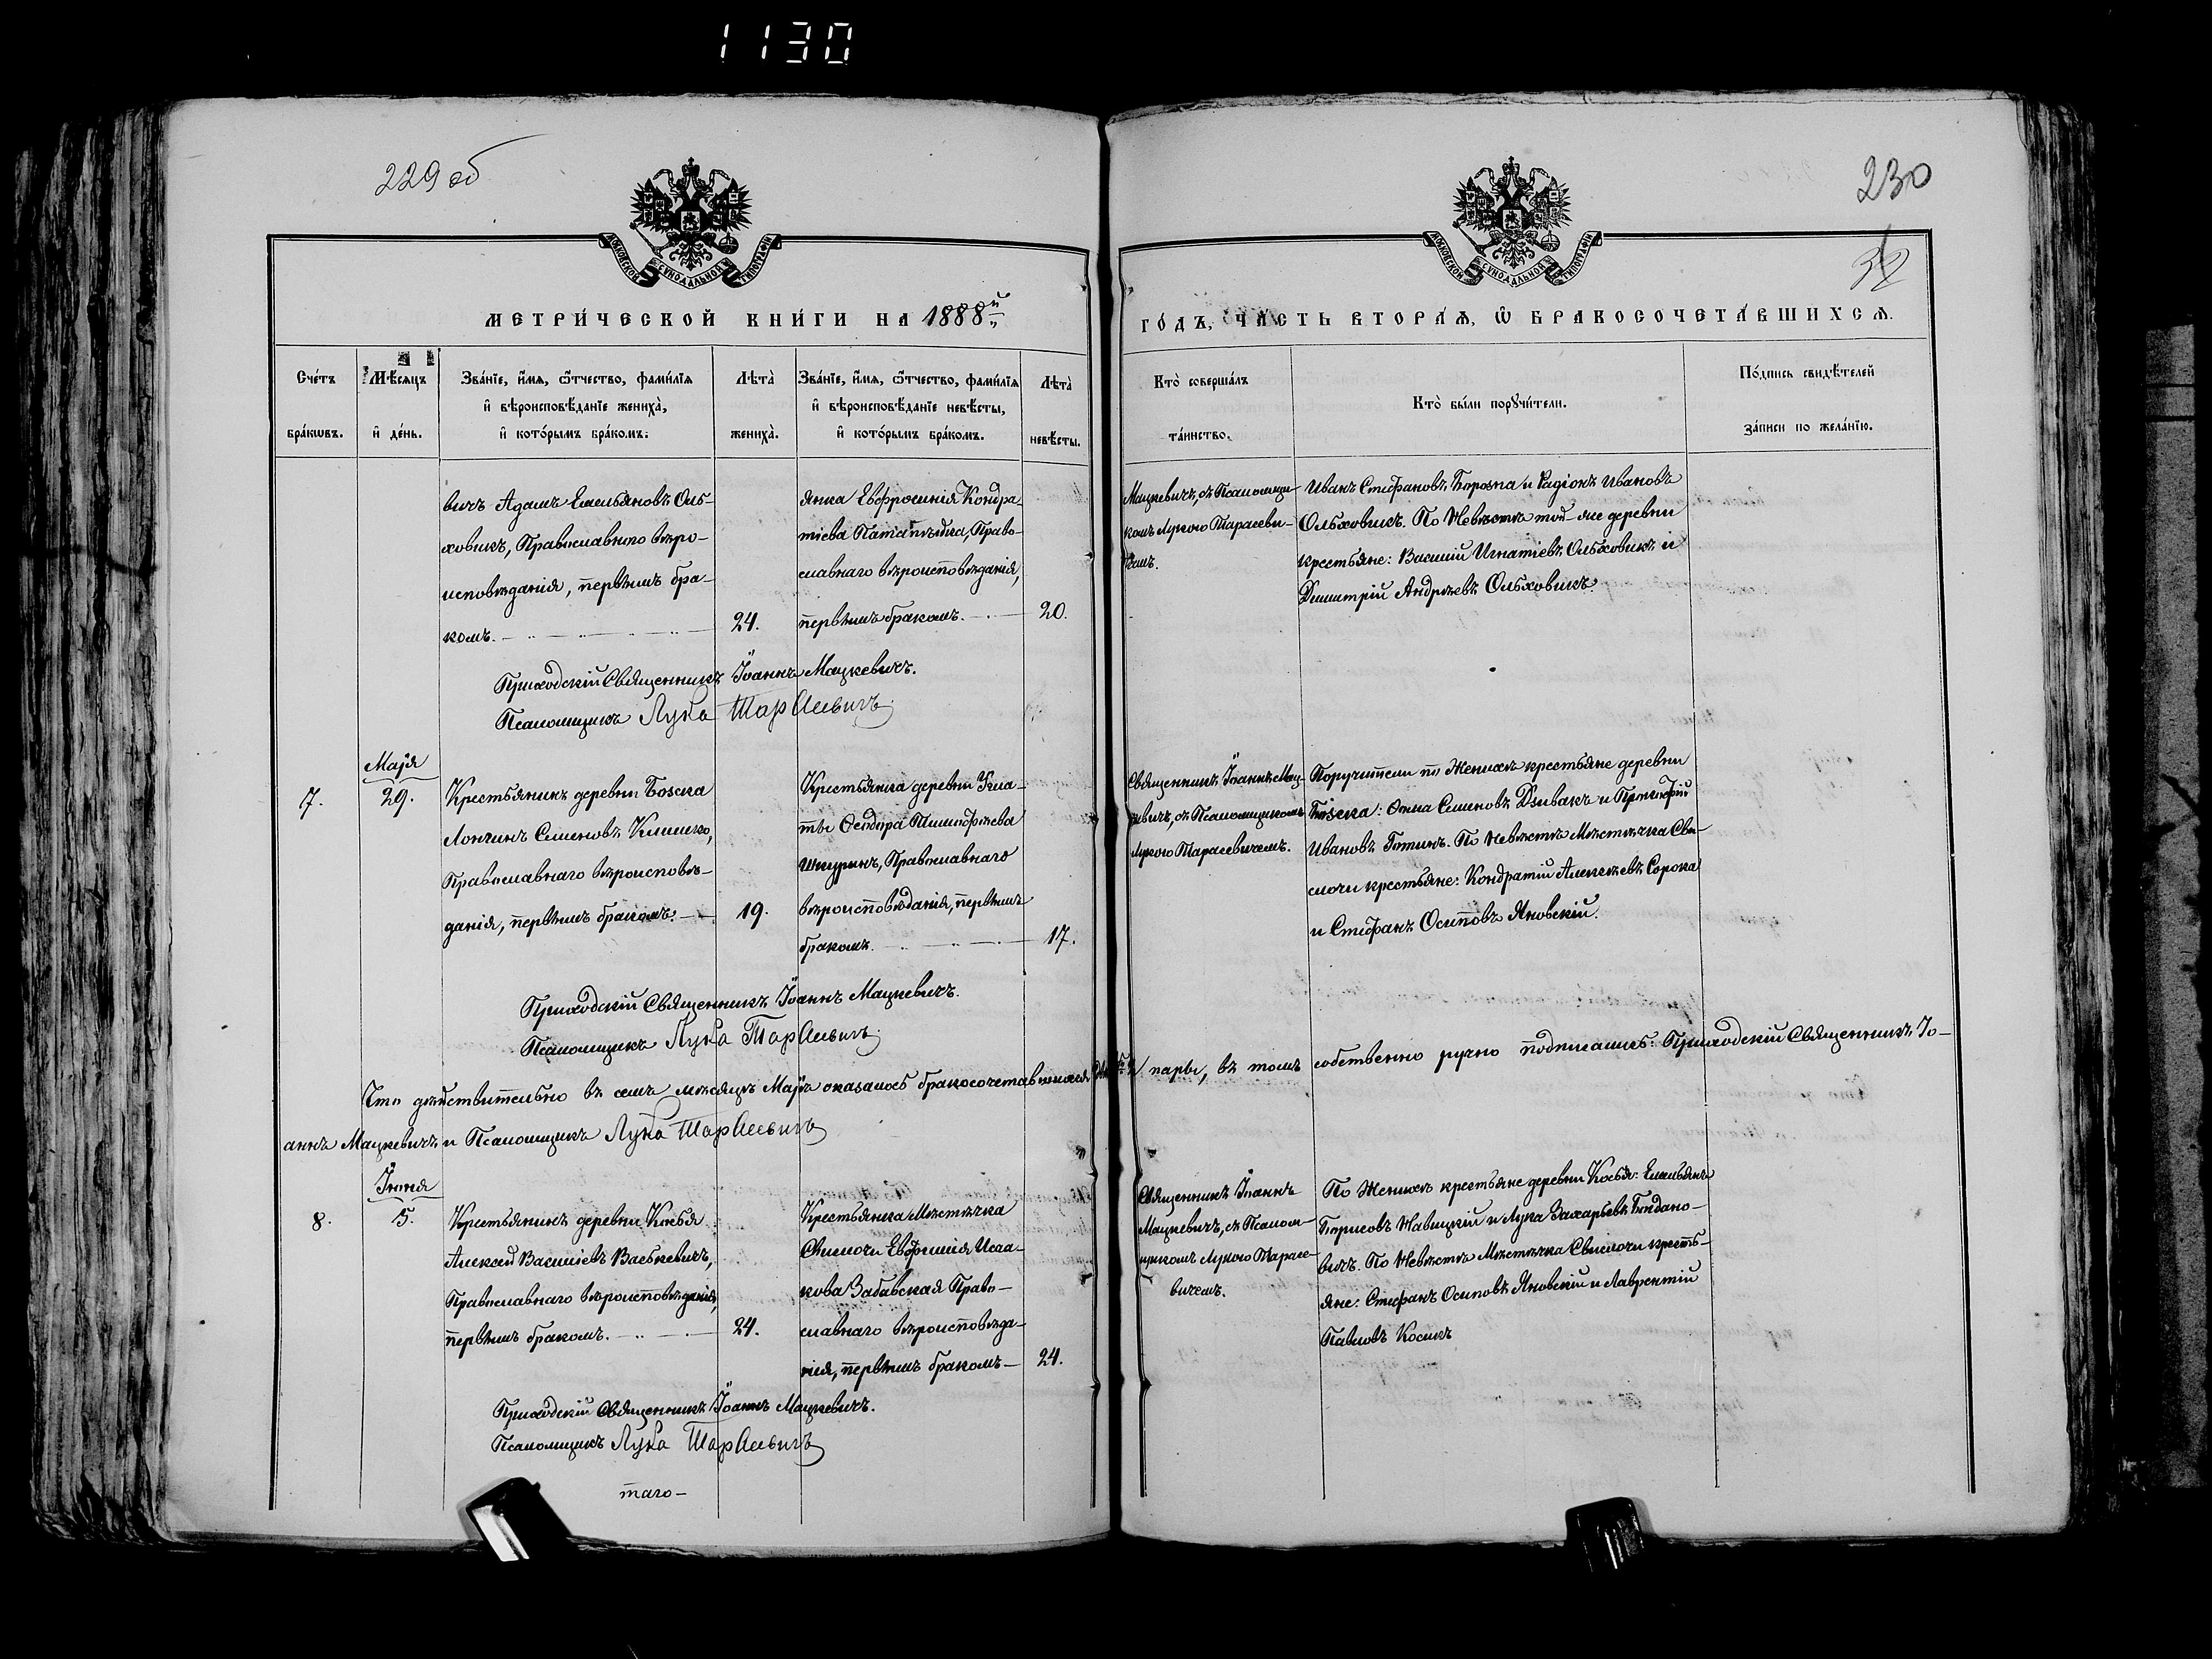 1130
229 об
230
МОСКОВСКОЙ СѴНОДАЛЬНОЙ ТИПОГРАФІИ
МОСКОВСКОЙ СѴНОДАЛЬНОЙ ТИПОГРАФІИ
МЕТРИ́ЧЕСКОЙ КНИ́ГИ НА 1888й
ГО́ДЪ, ЧА́СТЬ ВТОРА́Ѧ, Ѽ БРАКОСОЧЕТА́ВШИХСѦ.
Сче́тъ
бра́кѡвъ.
Мѣ́сѧцъ
и҆ де́нь.
Зва́нїе, и҆́мѧ, ѻ҆́тчество, фами́лїѧ
и҆ вѣроисповѣ́данїе жениха̀,
и҆ кото́рымъ бра́комъ.
Лѣта̀
жениха̀.
Зва́нїе, и҆́мѧ, ѻ҆́тчество, фами́лїѧ
и҆ вѣроисповѣ́данїе невѣ́сты,
и҆ кото́рымъ бра́комъ.
Лѣта̀
невѣ́сты.
Кто̀ соверша́лъ
та́инство.
Кто̀ бы́ли порꙋчи́тели.
По́дпись свидѣ́телей
за́писи по жела́нїю.
вичъ Адамъ Емельяновъ Оль-
ховикъ, Православнаго вѣро-
исповѣданія, первымъ бра-
комъ. 24.
янка Евфросинія Кондра-
тіева Право-
славнаго вѣроисповѣданія,
первымъ бракомъ. 20.
Мацкевичъ, съ Псаломщи-
комъ Лукою Тарасеви-
чемъ.
Иванъ Стефановъ Борозна и Родіонъ Ивановъ
Ольховикъ. По Невѣстѣ той-же деревни
крестьяне: Василій Игнатіевъ Ольховикъ и
Димитрій Андреевъ Ольховикъ.
Приходскій Священникъ Іоаннъ Мацкевичъ.
Псаломщикъ Лука Тарасевичъ
Маія
7. 29.
Крестьянинъ деревни
Лонгинъ Семеновъ Климко,
Православнаго вѣроисповѣ-
данія, первымъ бракомъ. 19.
Крестьянка деревни
Феодора Тимофеева
Шкурынъ, Православнаго
вѣроисповѣданія, первымъ
бракомъ. 17.
Священникъ Іоаннъ Мац-
кевичъ, съ Псаломщикомъ
Лукою Тарасевичемъ.
Поручители по Женихѣ крестьяне деревни
Фома Семеновъ Дзивакъ и Прокофій
Ивановъ По Невѣстѣ Мѣстечка Сви-
слочи крестьяне: Кондратій Алексѣевъ Сорока
и Стефанъ Осиповъ Яновскій.
Приходскій Священникъ Іоаннъ Мацкевичъ.
Псаломщикъ Лука Тарасевичъ
Что дѣйствительно въ семъ мѣсяцѣ Маіѣ оказалось бракосочетавшихся пары, въ томъ собственно ручно подписались: Приходскій Священникъ Іо-
аннъ Мацкевичъ и Псаломщикъ Лука Тарасевичъ
Іюня
8. 5.
Крестьянинъ деревни Косья
Алексѣй Василіевъ Васькевичъ,
Православнаго вѣроисповѣданія,
первымъ бракомъ. 24.
Крестьянка Мѣстечка
Свислочи Евфимія Исаа-
кова Забавская Право-
славнаго вѣроисповѣда-
нія, первымъ бракомъ 24.
Священникъ Іоаннъ
Мацкевичъ, съ Псалом-
щикомъ Лукою Тарасе-
вичемъ.
По Женихѣ крестьяне деревни Косья: Емельянъ
Борисовъ Навицкій и Лука Захарьевъ Богдано-
вичъ. По Невѣстѣ Мѣстечка Свислочи кресть-
яне: Стефанъ Осиповъ Яновскій и Лаврентій
Павловъ Косикъ
Приходскій Священникъ Іоаннъ Мацкевичъ.
Псаломщикъ Лука Тарасевичъ
таго-